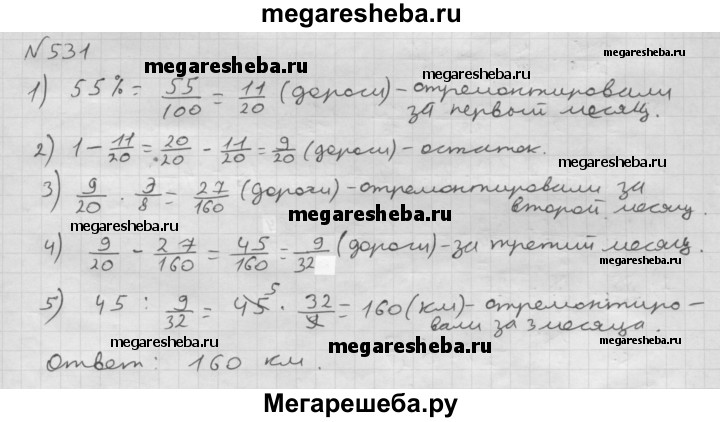 megaresheba.ru
N531
megaresheba.ru
1) 55% = 55/100 = 11/20 (дороги) - отремонтировали
megaresheba.ru
megaresheba.ru
за первый месяц.
2) 1 - 11/20 = 20/20 - 11/20 = 9/20 (дороги) - остаток.
3) 9/20 · 3/8 = 27/160 (дороги) - отремонтировали за
megaresheba.ru
второй месяц.
4) 9/20 - 27/160 = 45/160 = 9/32 (дороги) - за третий месяц.
megaresheba.ru
5) 45 : 9/32 = 45 5 · 32/9 = 160 (км) - отремонтиро-
megaresheba.ru
megaresheba.ru
вали за 3 месяца.
Ответ: 160 км.
megaresheba.ru
Мегарешеба.ру